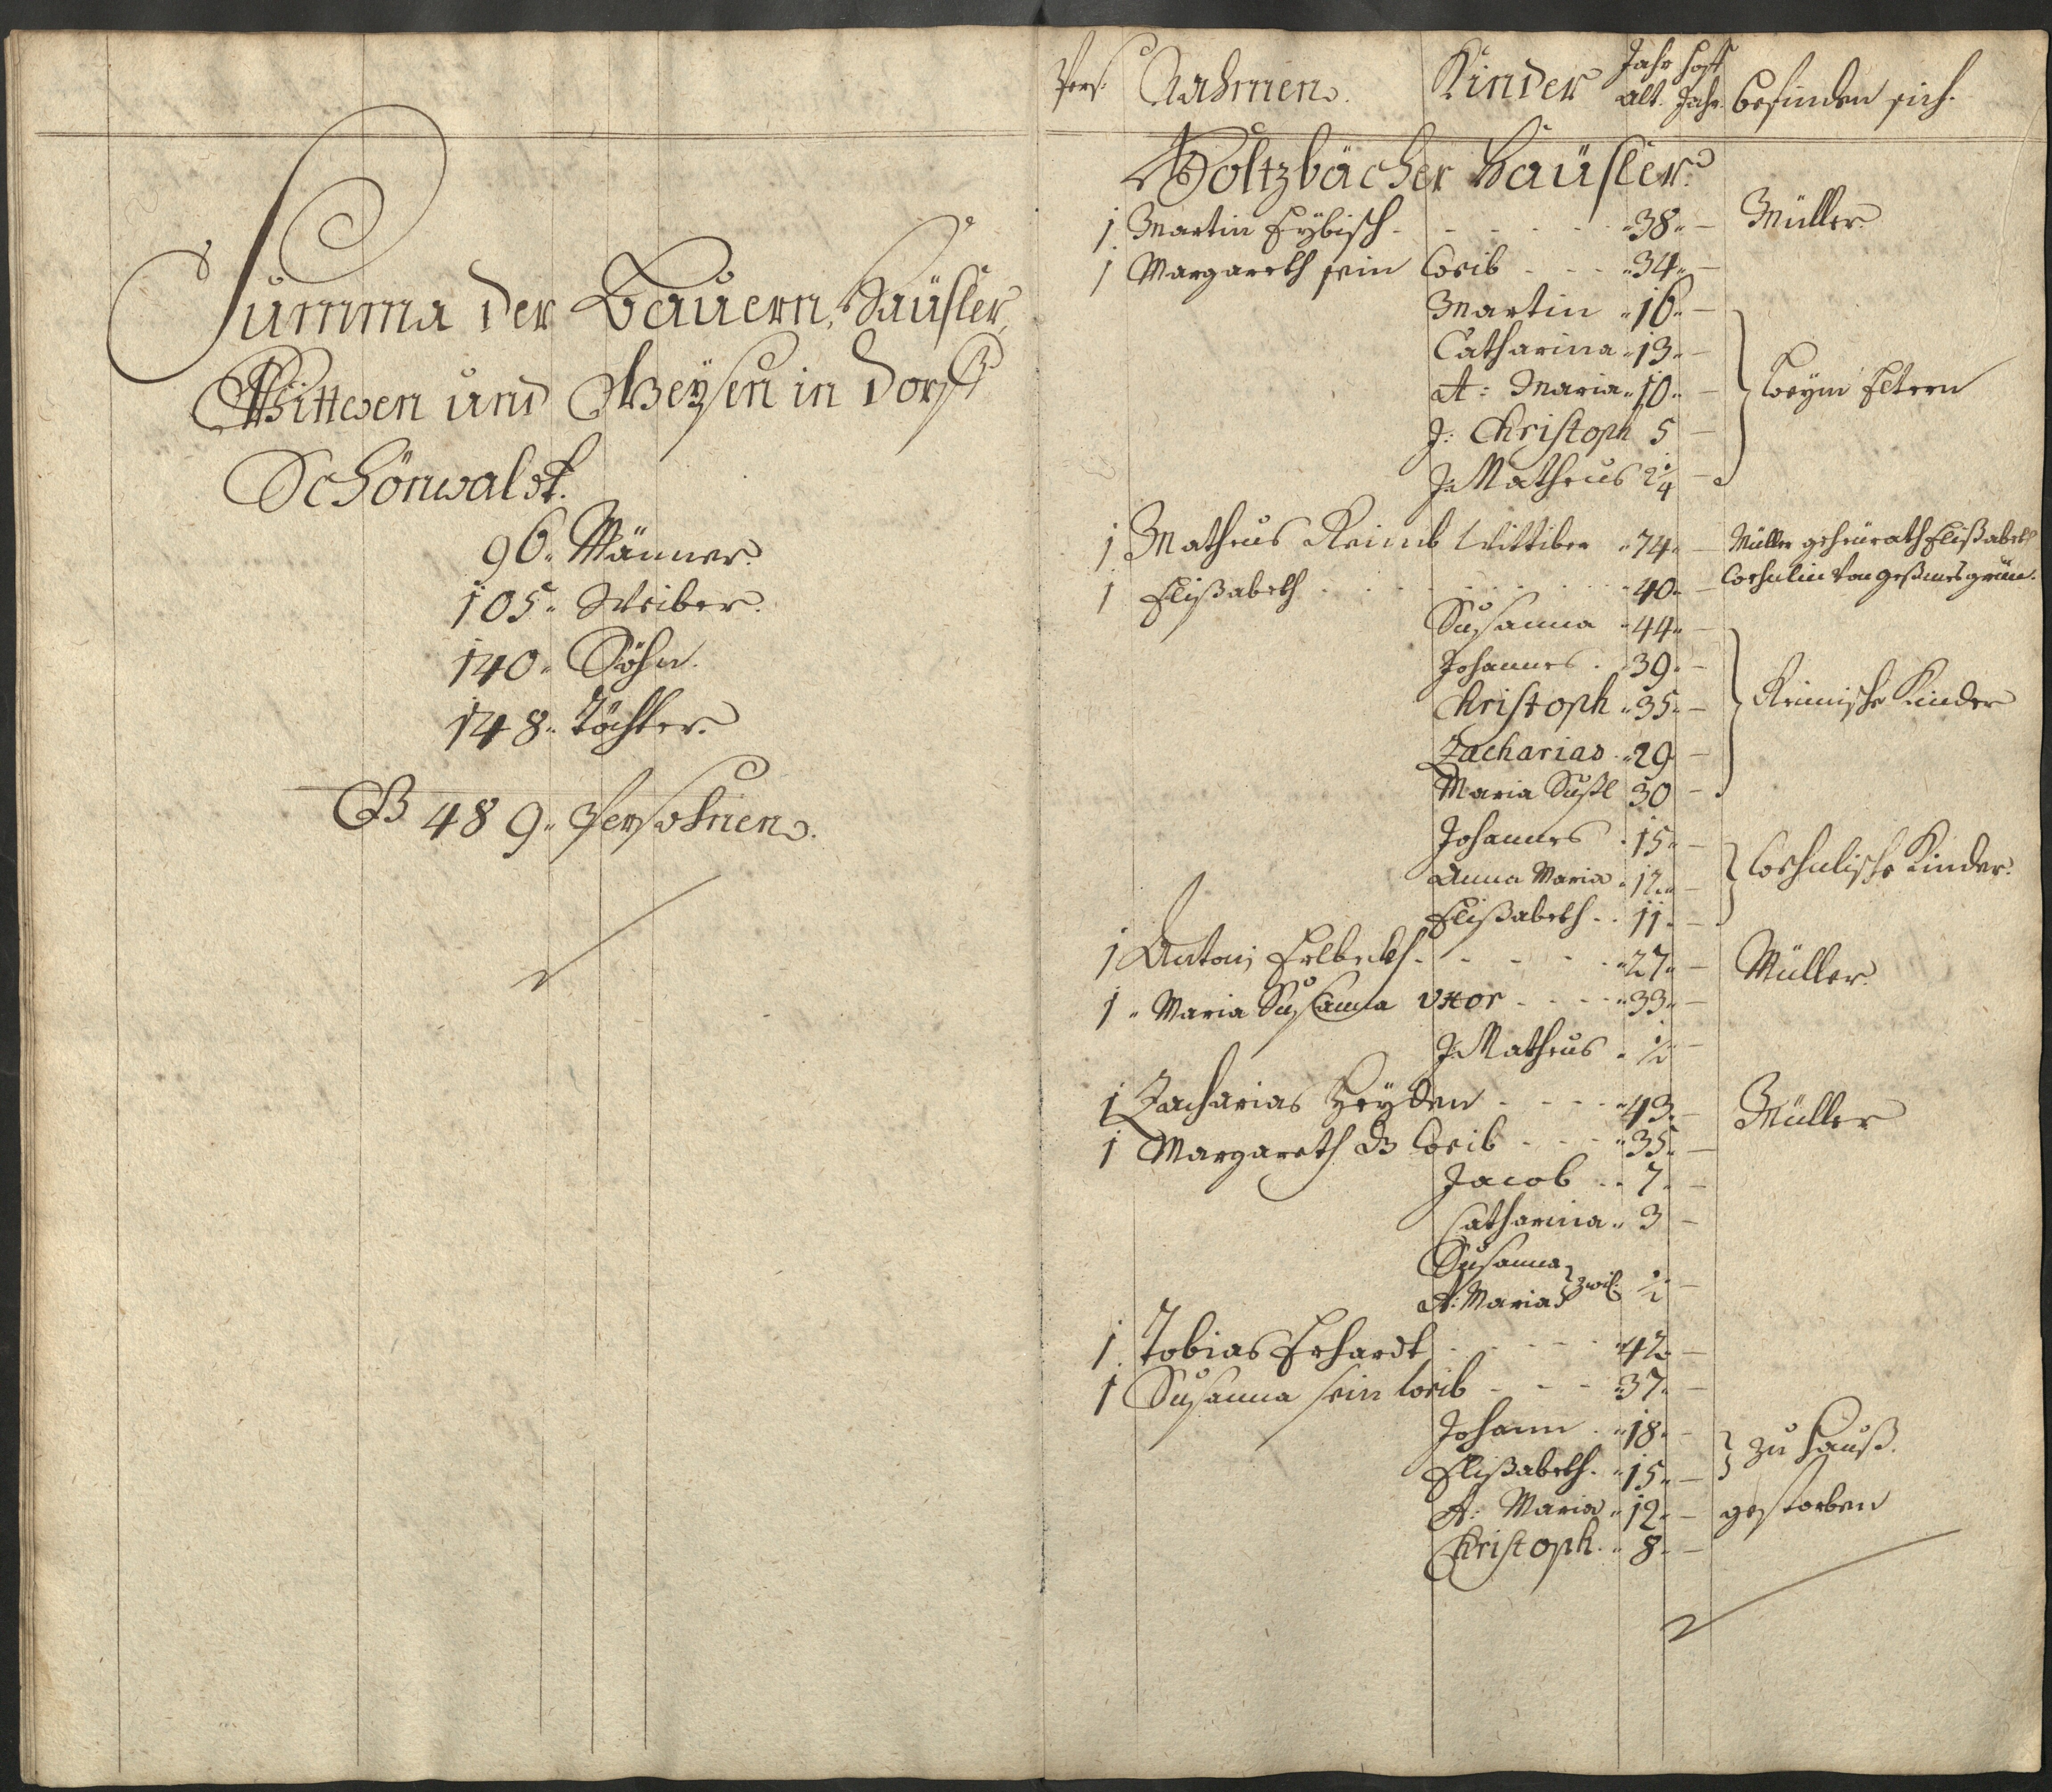 Summa der Bauern, Häüsler,
Wittwen und Weÿsen in Dorff
Schönwaldt.
96. Männer.
105. Weiber.
140. Söhn.
148. Töchter.
489. Persohnen.
Pers: Nahmen. Kinder Jahr alt. Hoff Jahr. befinden sich.
Holtzbächer Häüsler.
1 Martin Eÿbisch - 38. - Müller.
1 Margareth sein Weib - 34. -
Martin 16. -
Catharina 13. -
A: Maria 10. - beÿm Eltern
J: Christoph 5 -
J: Matheus 2 1/4 -
1 Matheus Wittiber 74. - Müller geheürath Elißabeth
1 Elißabeth 40. - von
Susanna 44. -
Johannes 39. -
Christoph 35. - Kinder
Zacharias 29 -
Maria Sußl 30 -
Johannes 15. -
Anna Maria 12. - Kinder.
Elißabeth 11. -
1 Antoni - 27. - Müller.
1 Maria Susanna uxor - 33. -
J: Matheus 1/2 -
1 Zacharias Heÿden - 43. - Müller
1 Margareth Weib - 35. -
Jacob 7. -
Catharina 3 -
Susanna
A: Maria zwil: 1/2 -
1 Tobias Erhardt - 42. -
1 Susanna sein Weib - 37. -
Johann 18. - zu Hauß.
Elißabeth 15. -
A: Maria 12. - gestorben
Christoph 8. -